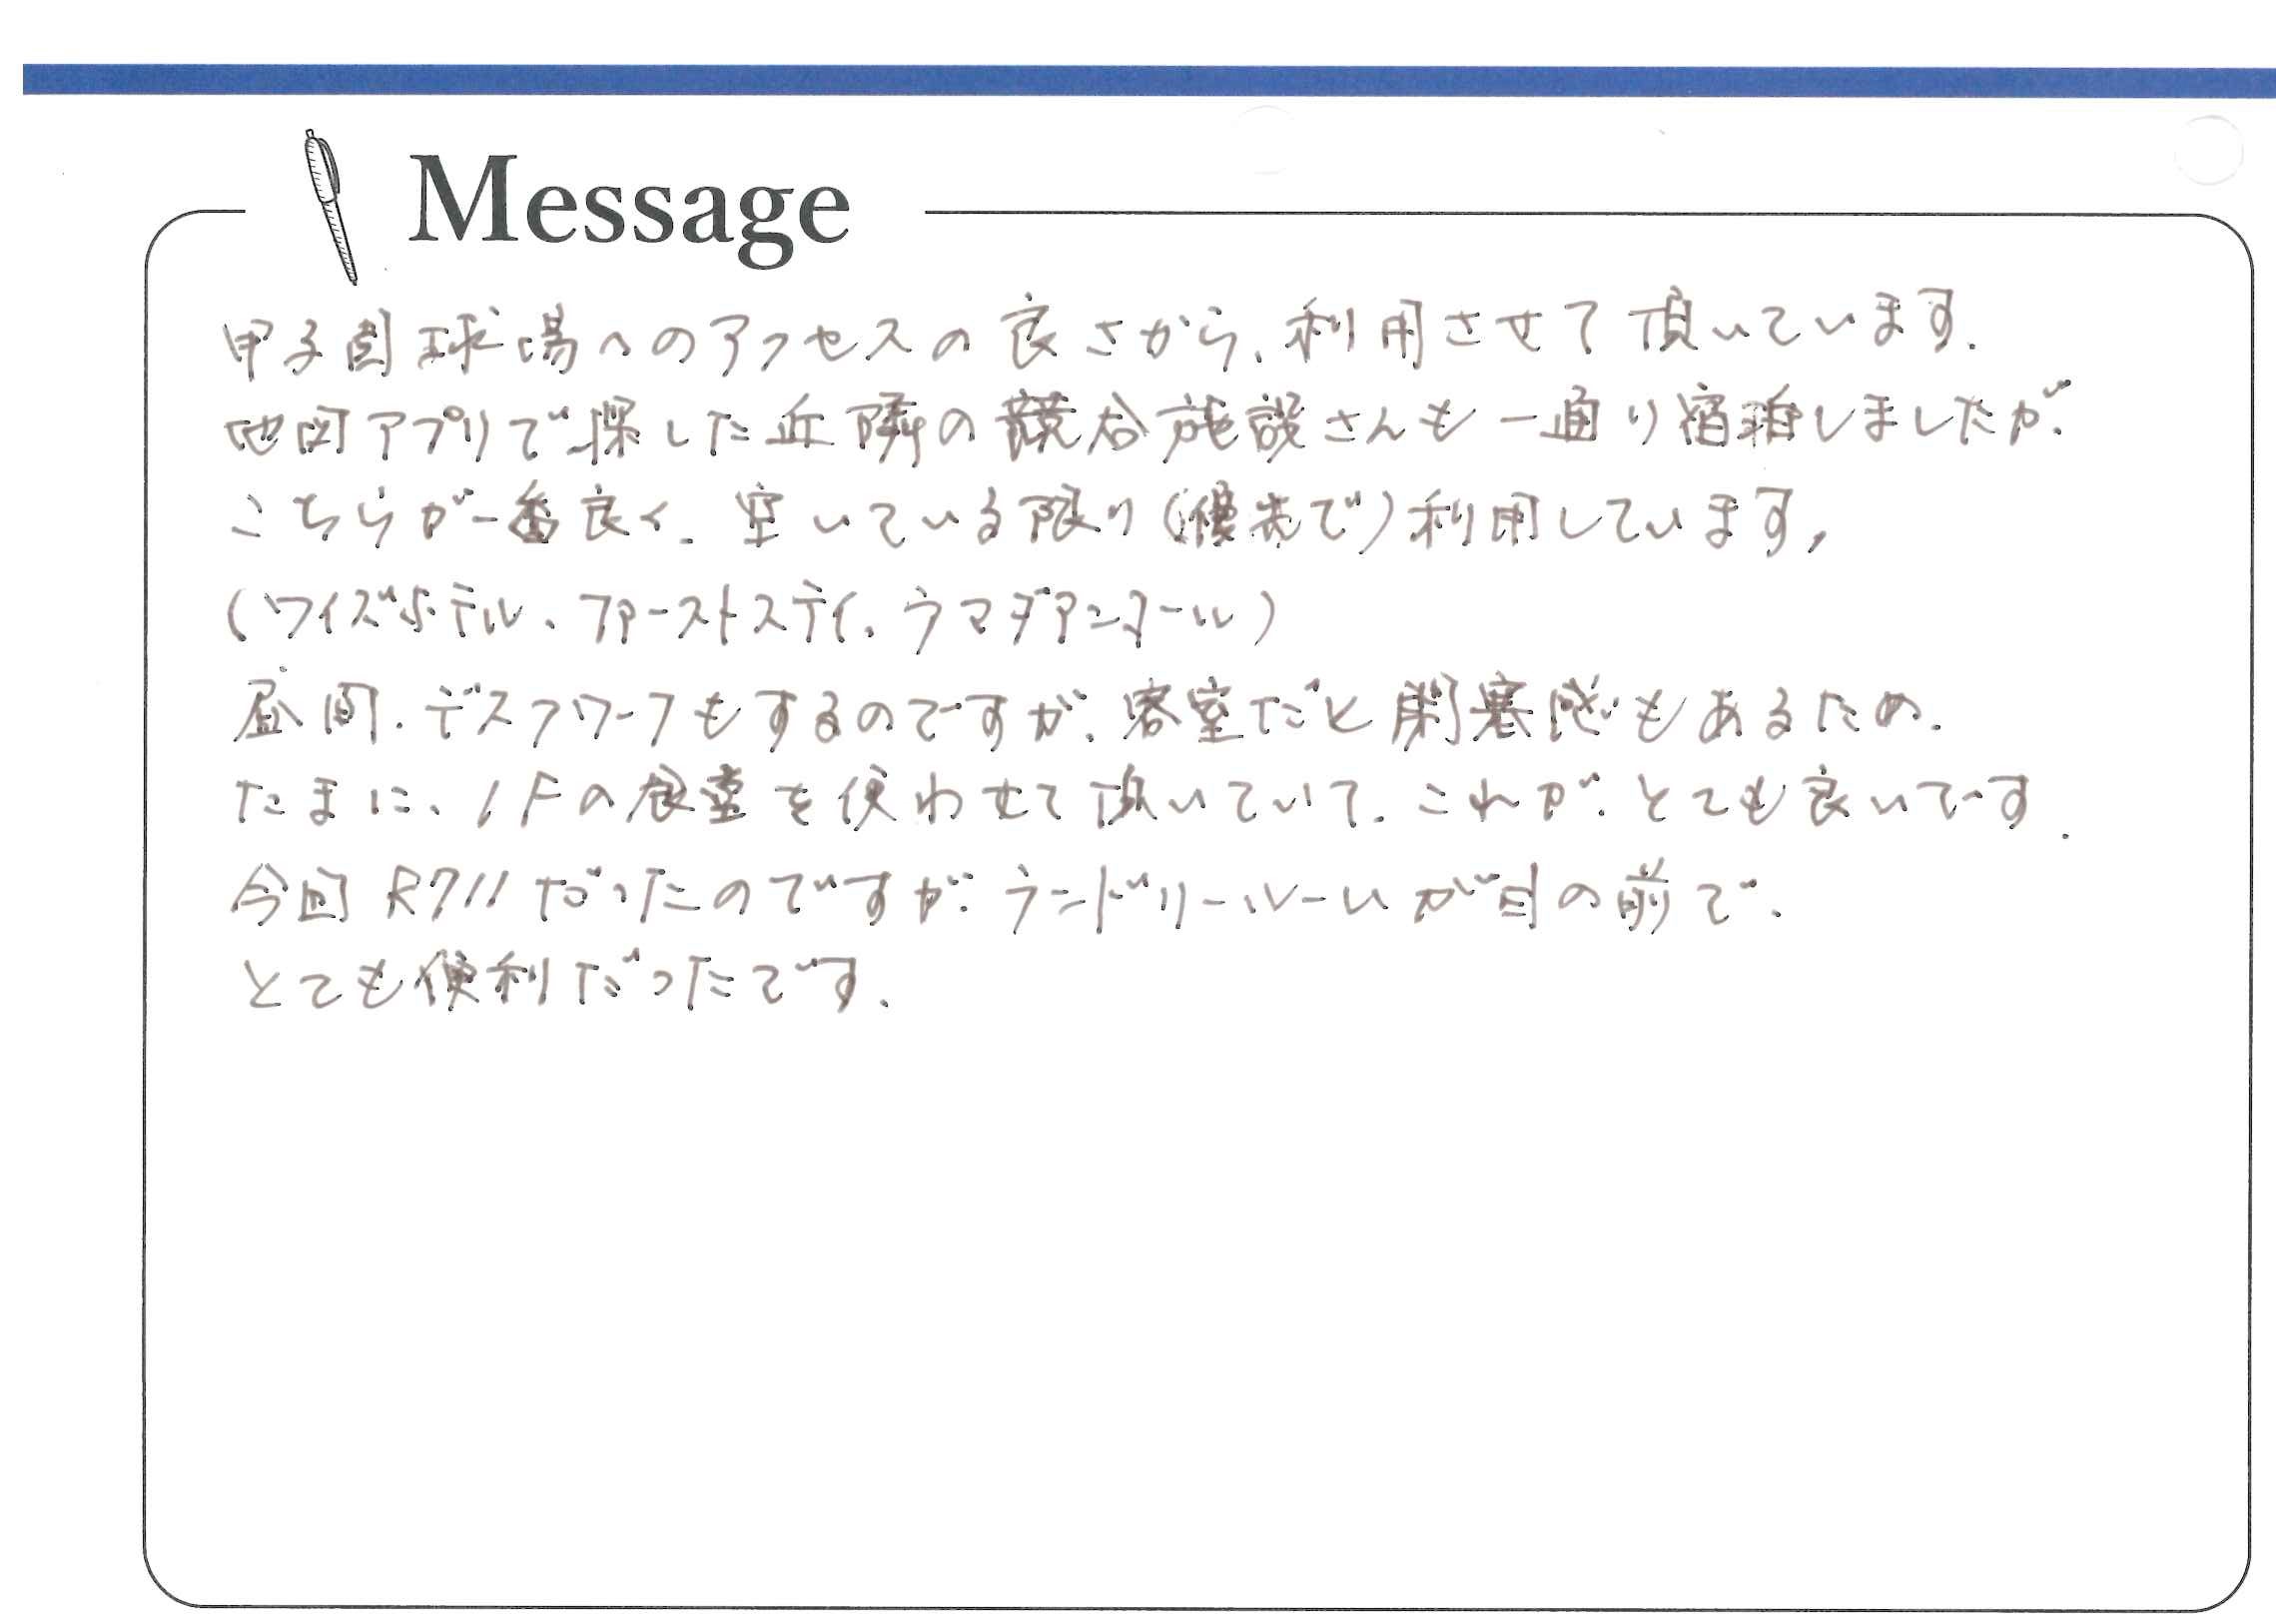 Message
甲子園球場へのアクセスの良さから、利用させて頂いています。
地図アプリで探した近隣の競合施設さんも一通り宿泊しましたが、
こちらが一番良く、空いている限り(優先で)利用しています。
(ワイズホテル、ファーストステイ、ラマダアンコール)
昼間、デスクワークもするのですが、客室だと閉塞感もあるため、
たまに、1Fの食堂を使わせて頂いていて、これが、とても良いです。
今回R711だったのですが、ランドリールームが目の前で、
とても便利だったです。